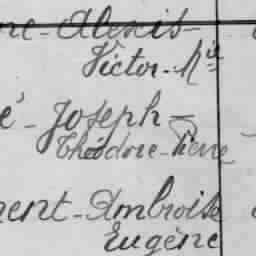 ne-Alexis-
Victor-Mie
é-Joseph-
Théodore-Pierre
ment-Ambroise
Eugène